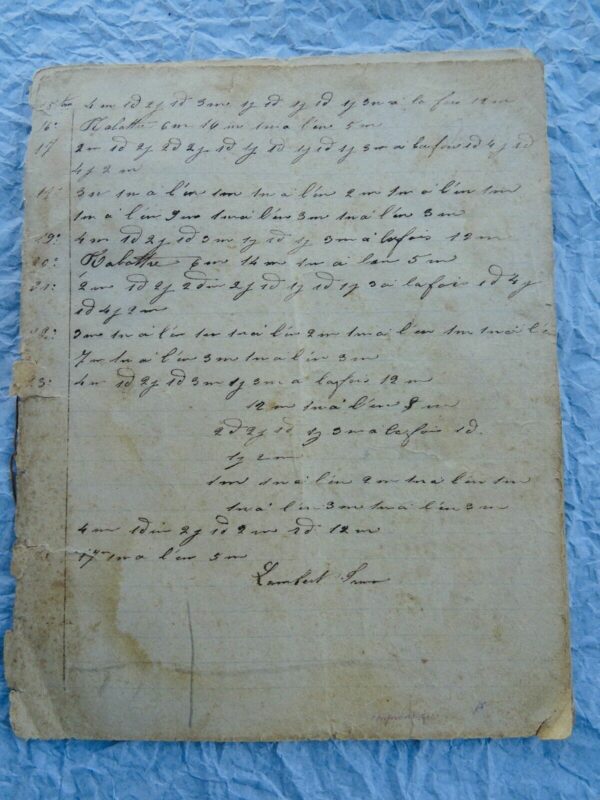 15e 4 m 1d 2j 1d 3m 1j 1d 1j 1d 1j 3m à la fois 12 m
16e Rabattre 6m 14 m 1m à l'en 5 m
17 2m 1d 2j 2d 2j 1d 1j 1d 1j 1d 1j 3m à la fois 1d 4j 1d
4j 2 m
18e 3m 1m à l'en 1m 1m à l'en 2m 1m à l'en 1m
1m à l'en 9m 1m à l'en 3m 1m à l'en 3m
19e 4m 1d 2j 1d 3m 1j 1d 1j 3m à la fois 12 m
20e Rabattre 6m 14 m 1m à l'en 5 m
21e 2m 1d 2j 2d 2j 1d 1j 1d 1j 3 à la fois 1d 4j
1d 4j 2m
22e 3m 1m à l'en 1m 1m à l'en 2m 1m à l'en 1m 1m à l'en
7m 1m à l'en 3m 1m à l'en 3 m
23e 4m 1d 2j 1d 3m 1j 3m à la fois 12 m
12 m 1m à l'en 8 m
2d 2j 1d 1j 3m à la fois 1d
1j 2m
1m 1m à l'en 2m 1m à l'en 1m
1m à l'en 3m 1m à l'en 3m
4m 1d 2j 1d 2m 2d 12 m
17m 1m à l'en 5 m
Lambert